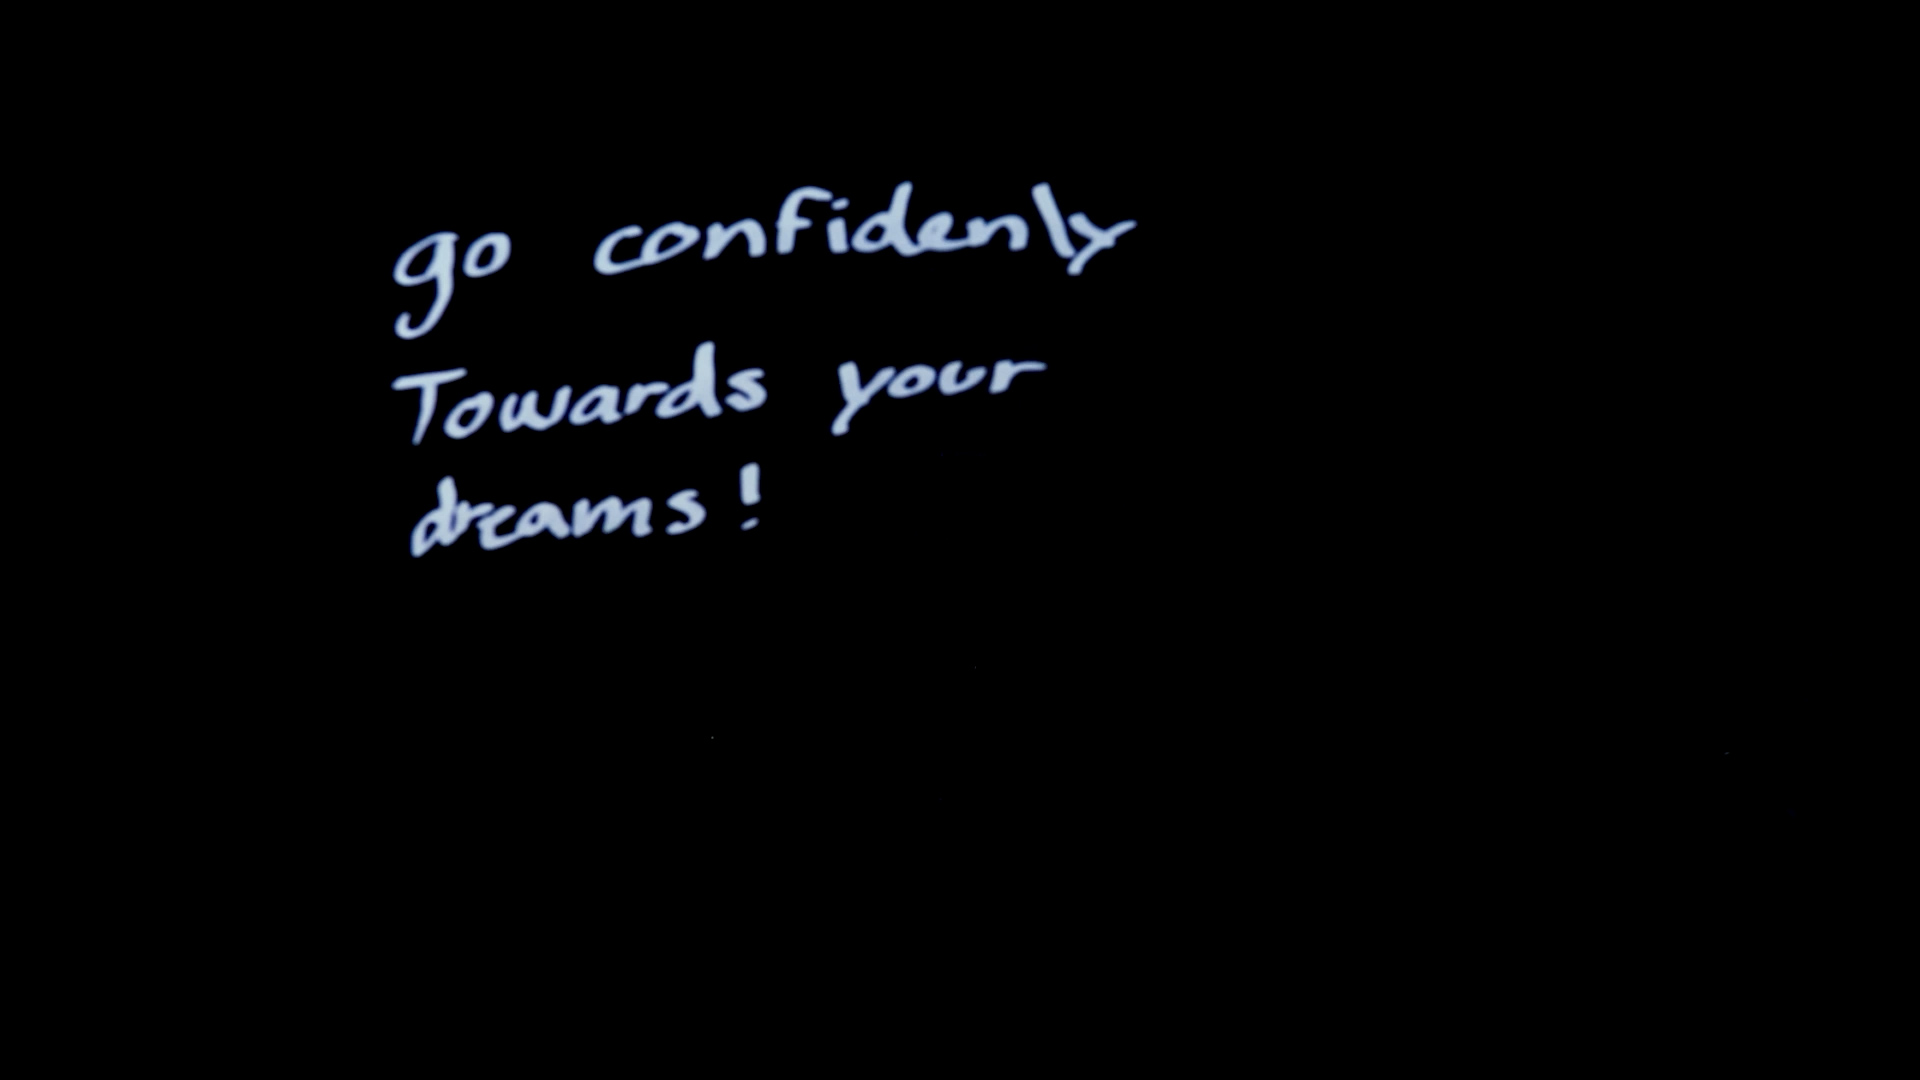 go confidenly
Towards your
dreams!